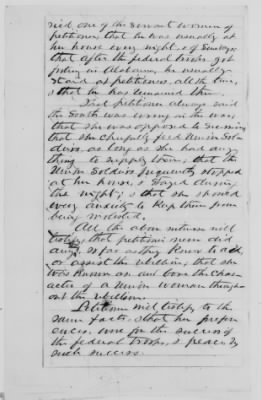 ried, one of the servant women of
petitioner, that he was usually at
her house every night, & Sundays
that after the federal troops got
foting in Alabama, he usually
staid at petitioners, all the time,
& that he has remained there.
That petitioner always said
the South was wrong in the war,
that she was opposed to secession
that she cheerfully feed Union Sol-
diers, as long as she had any
thing to supply them, that the
Union Soldiers frequently stopped
at her house, & staid during
the night, & that she showed
every anxiety to keep them from
being molested.
All the above witness will
testify, that petitioner never did
any, so far as they know to aid,
or assist the rebellion, that she
was known as, and bore the char-
acter of a Union woman through-
out the rebellion.
Petitioner will testify to the
same facts, & that her prefer-
ences, were for the success of
the federal troops, & peace by
such success.